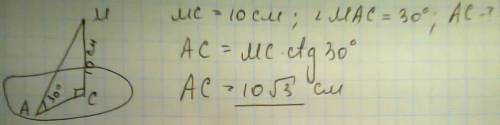 M
MC = 10 см ; ∠MAC = 30° ; AC - ?
10 см
AC = MC · ctg 30°
30°
A
C
AC = 10√3 см